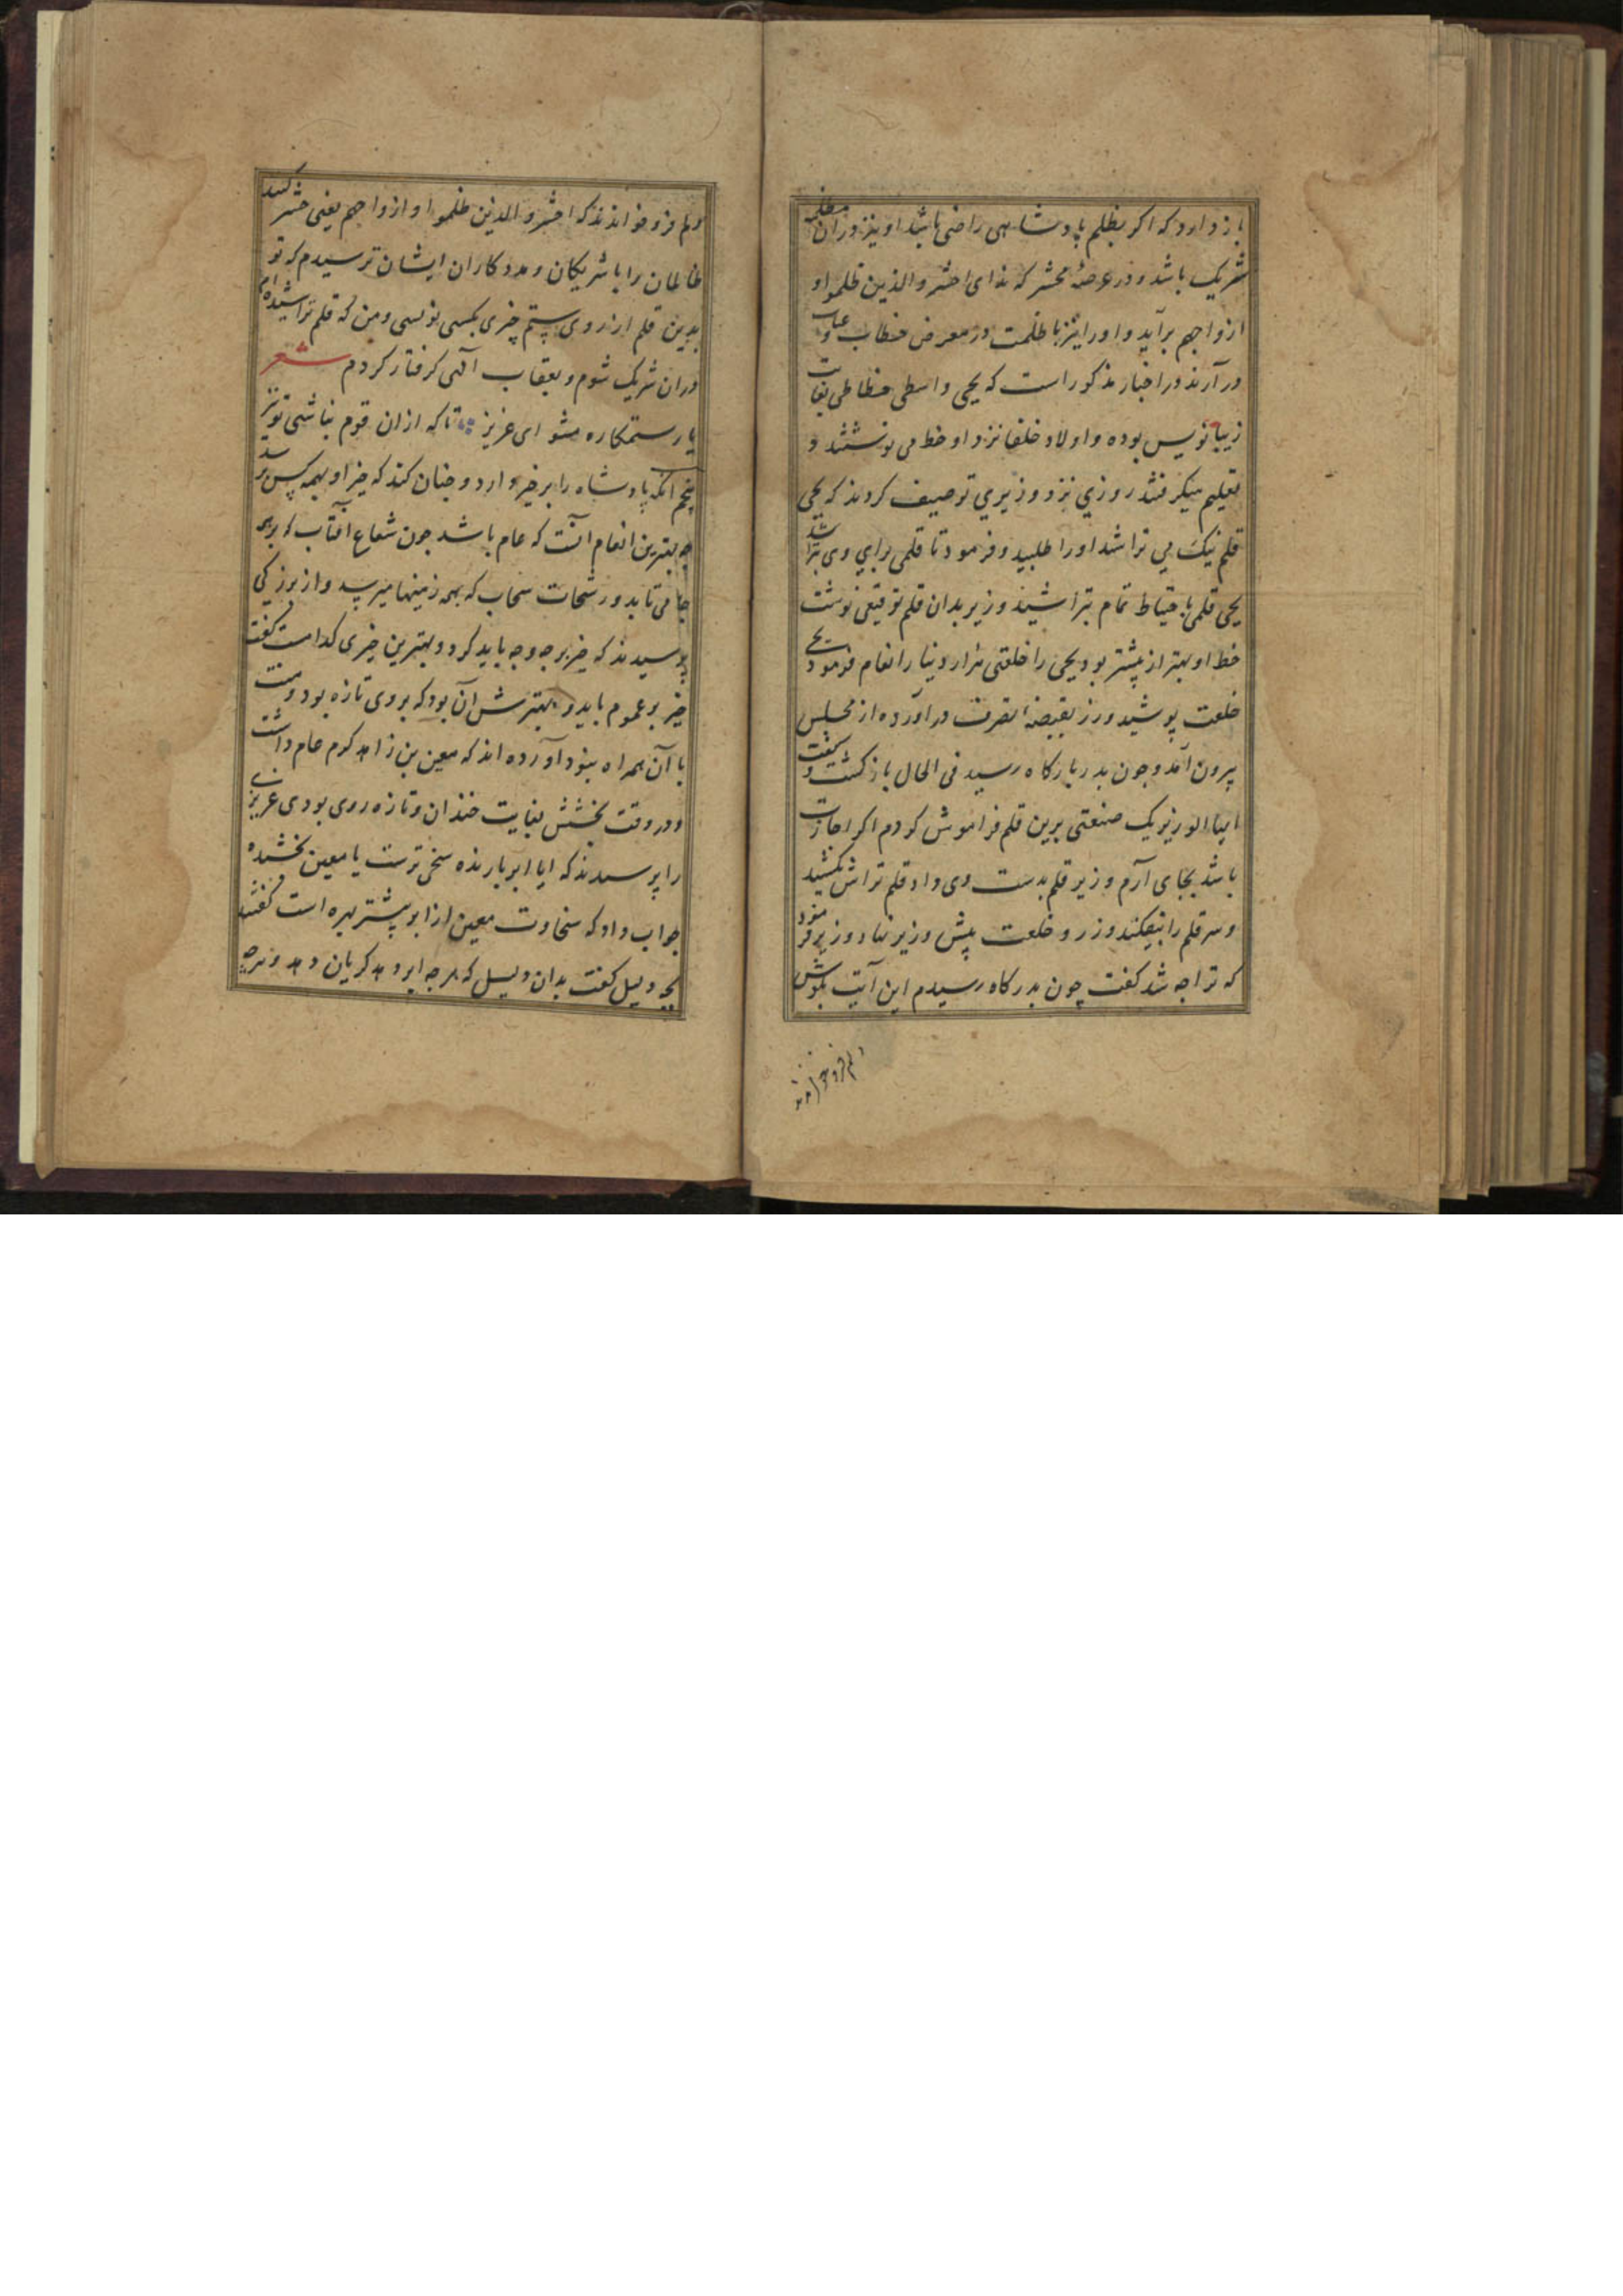 باز دارد که اکر بظلم پادشاهی راضی باشد او نیز دران مظلمه
شریک باشد و در عرصهٔ محشر که ندای احشروالذین ظلموا و
ازواجهم برآید و او را نیز با ظلمت در معرض خطاب و عتاب
در آرند در اخبار مذکور است که یحیی واسطی خطاطی بغایت
زیبا نویس بوده و اولاد خلفا نزد او خط می نوشتند و
تعلیم میکرفتند روزی نزد وزیری توصیف کردند که یحیی
قلم نیک می تراشد او را طلبید و فرمود تا قلمی برای وی بتراشد
یحیی قلمی باحتیاط تمام بتراشید وزیر بدان قلم توقیعی نوشت
خط او بهتر از پیشتر بود یحیی را خلعتی هزار دینار انعام فرمود یحیی
خلعت پوشید و زر بقبضهٔ تصرف در آورده از مجلس
بیرون آمد و چون بدر بارکاه رسید فی الحال باز کشت و کفت
ایها الوزیر یک صنعتی برین قلم فراموش کردم اکر اجازت
باشد بجای آرم وزیر قلم بدست وی داد قلم تراش بکشید
و سر قلم را بیفکند و زر و خلعت پیش وزیر نهاد وزیر فرمود
که ترا چه شد کفت چون بدرکاه رسیدم این آیت بکوش
دلم فرو خواندند
دلم فرو خواندند که احشروالذین ظلموا و ازواجهم یعنی حشر کنید
ظالمان را با شریکان و مددکاران ایشان ترسیدم که تو
بدین قلم از روی ستم چیزی بکسی نویسی و من که قلم تراشیده ام
دران شریک شوم و بعقاب الهی کرفتار کردم شعر
یار ستمکاره مشو ای عزیز تا که ازان قوم نباشی تو نیز
پنجم انکه پادشاه را بر خیر دارد و چنان کند که خیر او بهمه کس برسد
چه بهترین انعام انست که عام باشد چون شعاع آفتاب که بر همه
جا می تابد و رشحات سحاب که بهمه زمینها میرسد و از بزرکی
پرسیدند که خیر بر چه وجه باید کرد و بهترین خیری کدامست کفت
خیر بر عموم باید و بهترش آن بود که بروی تازه بود و منت
با آن همراه نبود آورده اند که معین بن زاهد کرم عام داشت
و در وقت بخشش بغایت خندان و تازه روی بودی عزیزی
را پرسیدند که ایا ابر بارنده سخی ترست یا معین بخشنده
جواب داد که سخاوت معین از ابر پیشتر بهره است کفتند
بچه دلیل کفت بدان دلیل که هر چه ابر دهد کریان دهد و هرچه